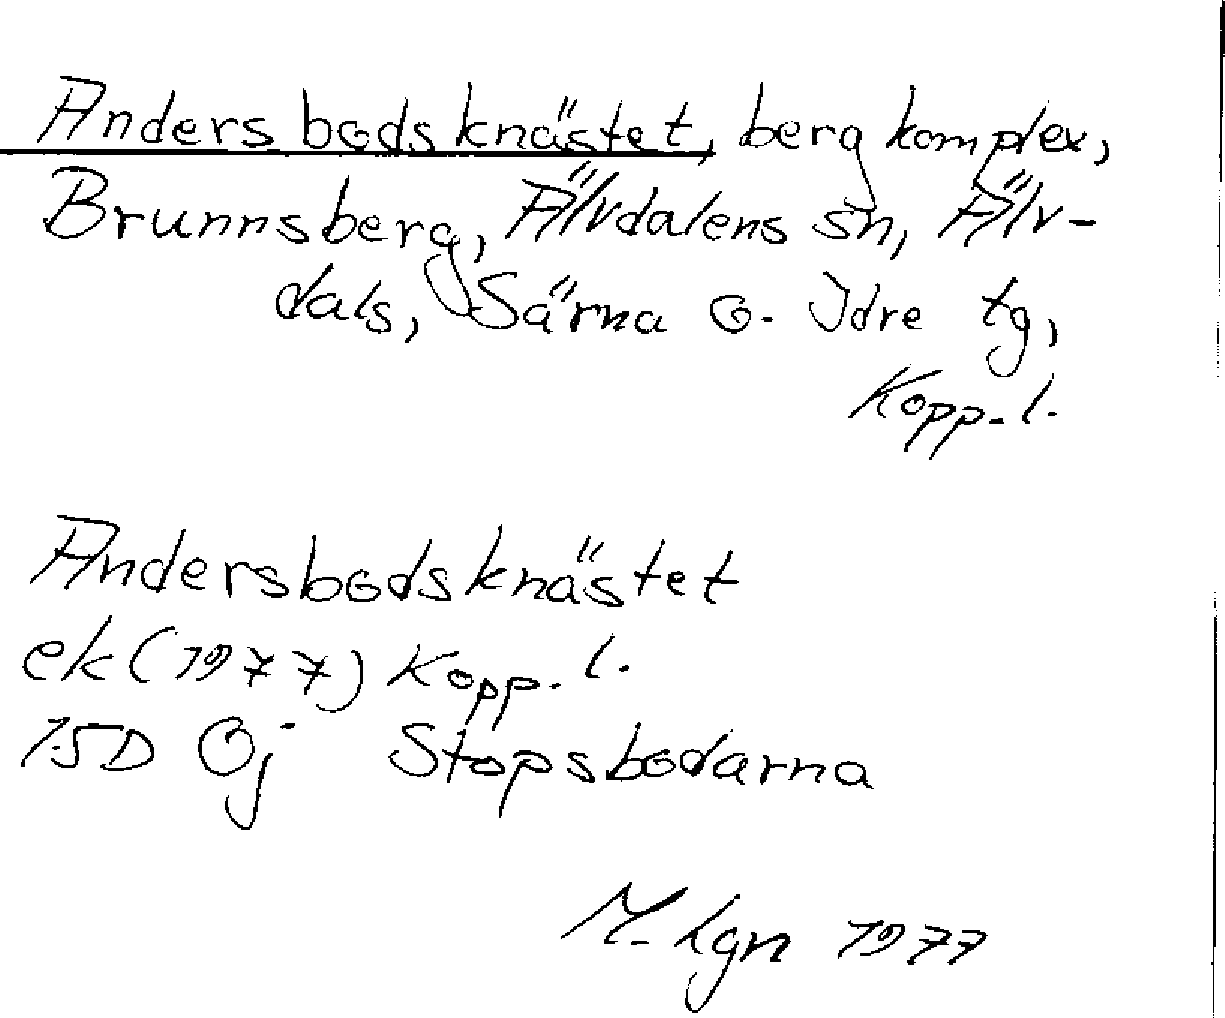 Andersbodsknästet, bergkomplex,
Brunnsberg, Älvdalens sn, Älv-
dals, Särna o. Idre tg,
Kopp. l.
Andersbodsknästet
ek (1977) Kopp. l.
15D 0j Stopsbodarna
M. Lgn 1977